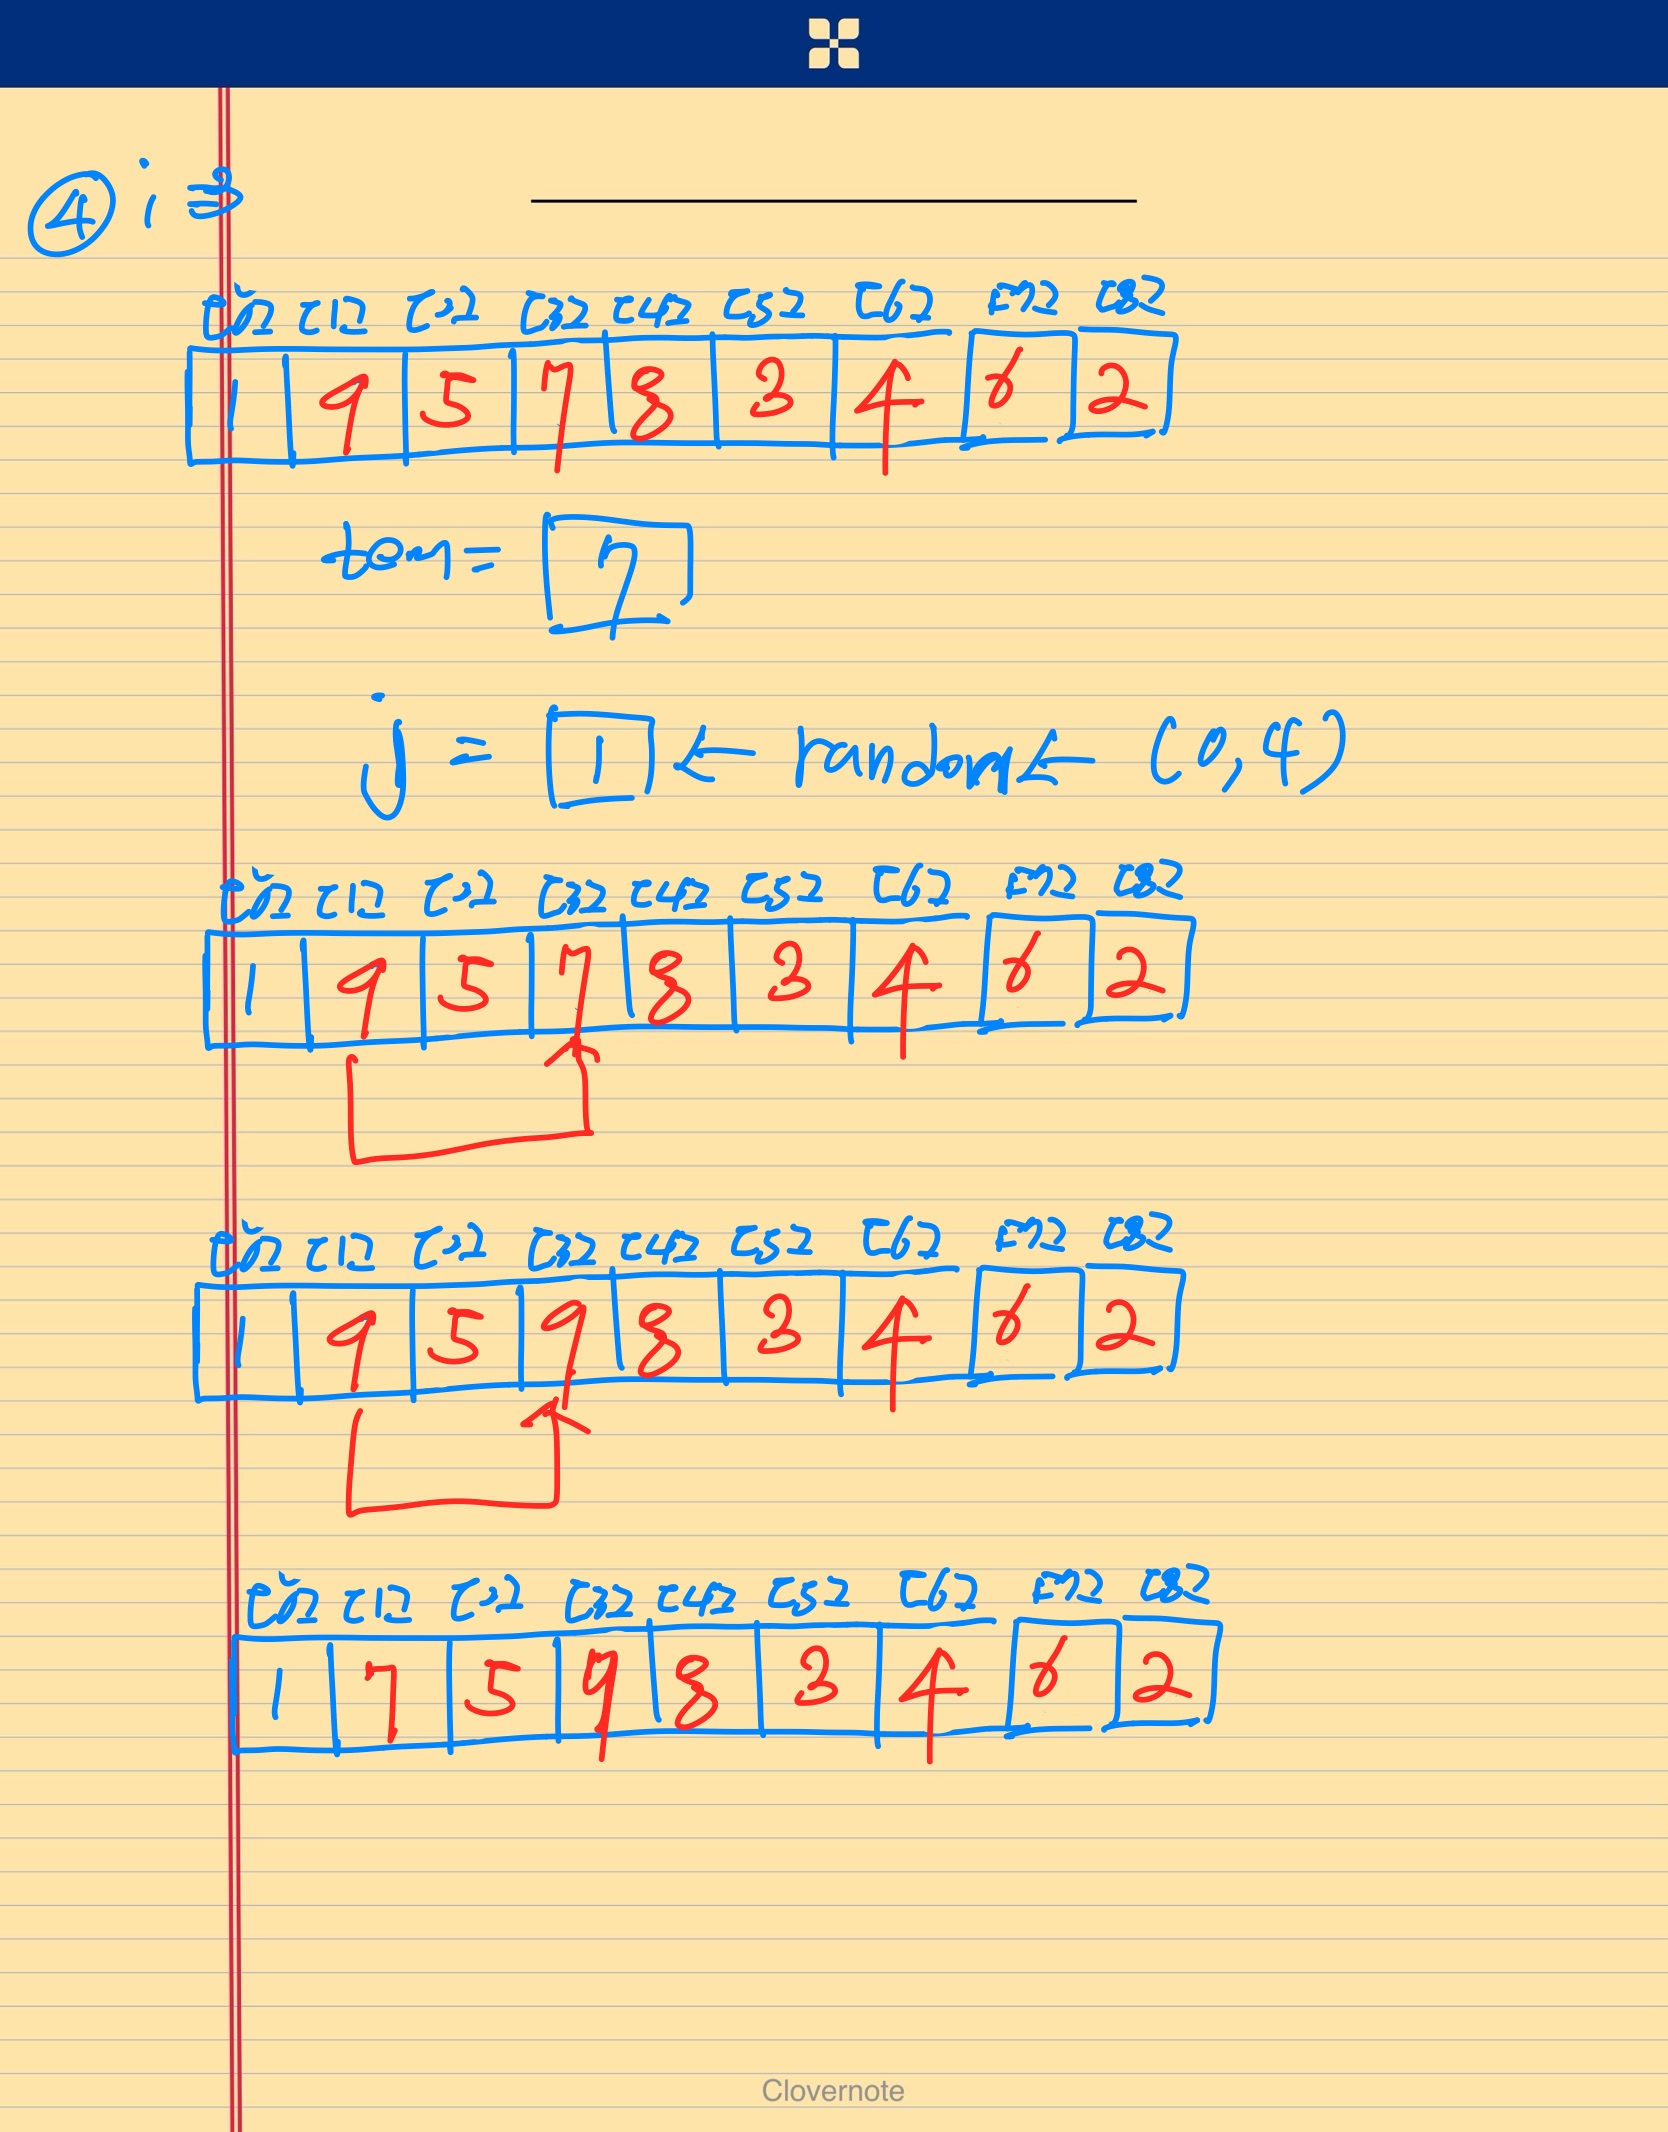 ④ i = 3
[0] [1] [2] [3] [4] [5] [6] [7] [8]
1 9 5 7 8 3 4 6 2
tem = 7
j = 1 ← random ← (0,4)
[0] [1] [2] [3] [4] [5] [6] [7] [8]
1 9 5 7 8 3 4 6 2
[0] [1] [2] [3] [4] [5] [6] [7] [8]
1 9 5 9 8 3 4 6 2
[0] [1] [2] [3] [4] [5] [6] [7] [8]
1 7 5 9 8 3 4 6 2
Clovernote